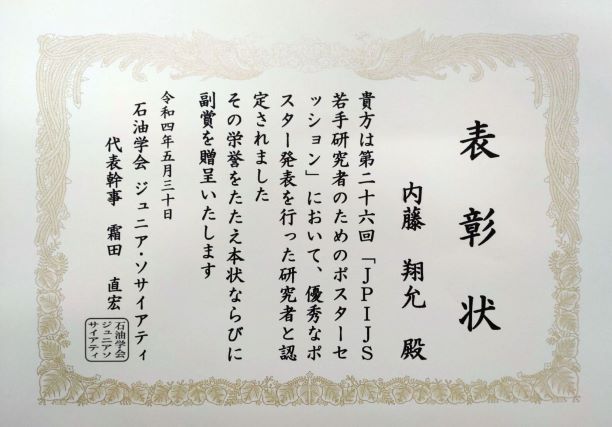 表彰状
内藤 翔允 殿
貴方は第二十六回「JPIJS
若手研究者のためのポスターセ
ッション」において、優秀なポ
スター発表を行った研究者と認
定されました
その栄誉をたたえ本状ならびに
副賞を贈呈いたします
令和四年五月三十日
石油学会 ジュニア・ソサイアティ
代表幹事 霜田 直宏
石油学会
ジュニアソ
サイアティ